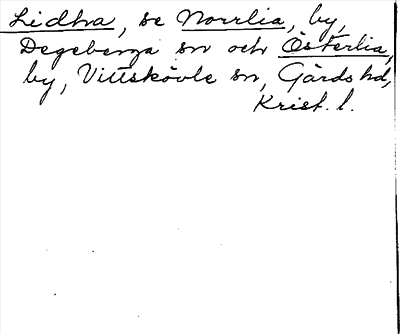 Lidhra, se Norrlia, by,
Degeberga sn och Österlia,
by, Vittskövle sn, Gärds hd,
Krist. l.